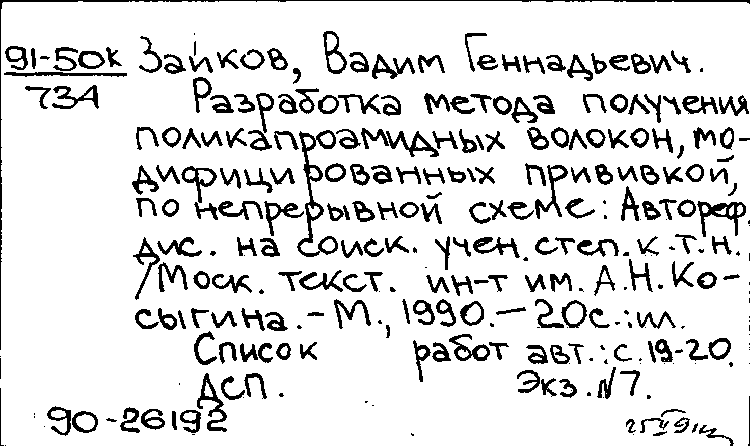 91-50к Зайков, Вадим Геннадьевич.
734
Разработка метода получения
поликапроамидных волокон, мо-
дифицированных прививкой,
по непрерывной схеме: Автореф.
дис. на соиск. учен. степ. к.т.н.
/Моск. текст. ин-т им. А.Н. Ко-
сыгина. - М., 1990. - 20с.: ил.
Список работ авт.: с. 19-20.
ДСП. Экз. №7.
90-26192